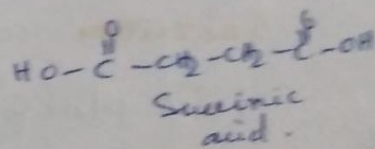 O O
HO-C-CH2-CH2-C-OH
Succinic
acid.